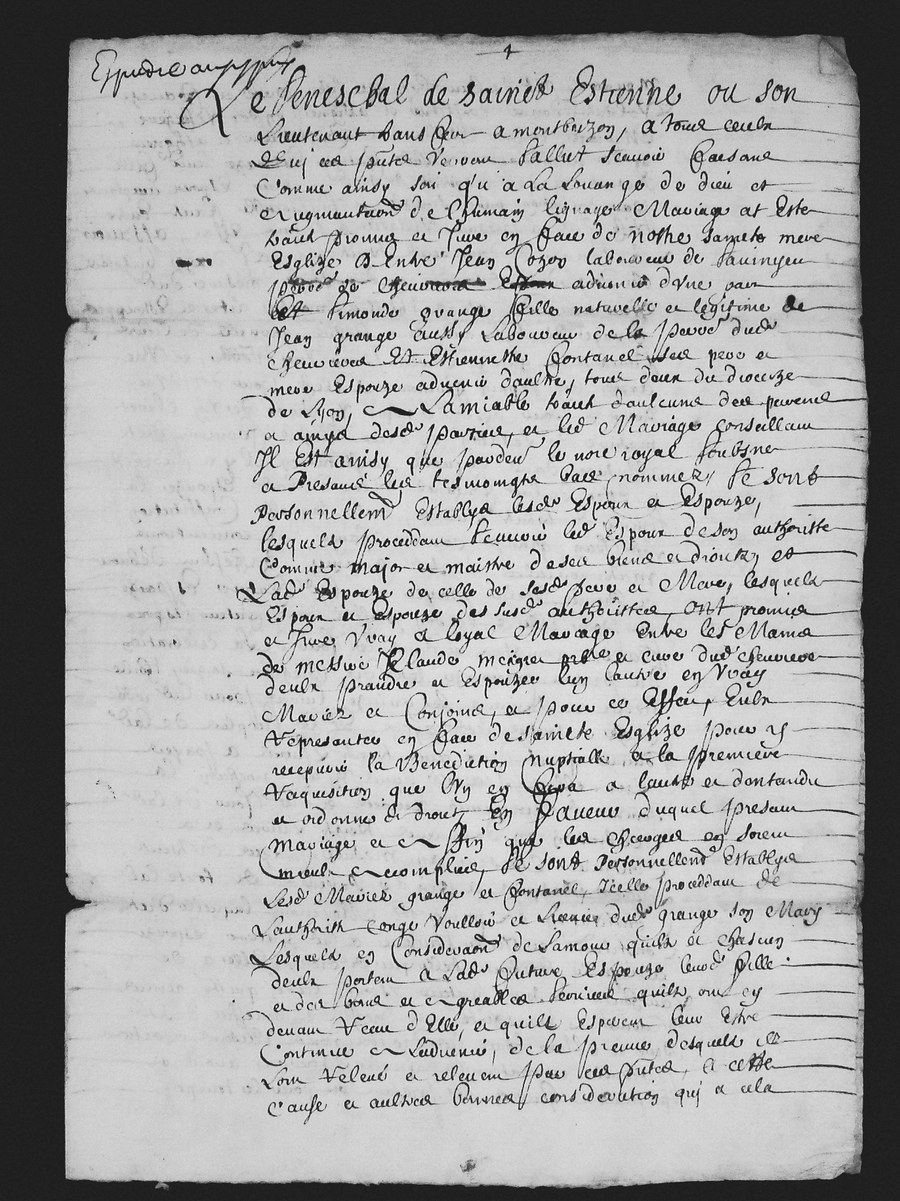 Expedie aux parties
Le Seneschal de Sainct Estienne ou son
Lieutenant dans Cer a montbrizon, a tous ceulx
qui ces pntes verront Sallut scavoir faisons
Comme ainsy soi qu'a La Louange de dieu et
augmentaon de Lhumain lignage Mariage at Este
traicte promis et Jure en face de nostre saincte mere
Esglize Entre Jean laboureur de
de d'une part
Et Simonde grange fille naturelle et legitime de
Jean grange aussy Laboureur de la parre dud
chevrieres Et Estiennette fontanel ses pere et
mere Espouze advenir d'aultre, tous deux du diocoze
de Lyon, Lamiable traicte d'aulcuns des parents
et amys desd parties, et led Mariage consellant
Il est ainsy que pardevt le nore royal soubsne
et Presants les tesmoingts bas nommez, se sont
Personnellemt Establys lesd Espoux et Espouze,
lesquels proceddant scavoir led Espoux de son authoritte
Comme major et maistre de ses biens et droicts, et
Lad Espouze de celle de sesd pere et Mere, lesquels
Espoux et Espouze des susd authorittes, ont promis
et Jure vray et loyal Mariage Entre les Mains
de messire Claude pbre et cure dud chevrieres
d'eulx prandre et Espouzer l'un l'autre en vray
Mariez et Conjoincts, et pour ce Effect, Eulx
represanter en face de saincte Esglize pour y
recepvoir la Benediction nuptialle a la premiere
requisition que l'un en fera a l'autre
et ordonne de droict, En faveur duquel presant
mariage et affin que les charges en soient
mieulx accomplies, se sont Personnellemt Establys
Lesd Mariez grange et fontanel, Icelle proceddant de
Lauthorite conge voulloir et Licence dud grange son Mary
Lesquels en Consideraon de Lamour quils et chascun
d'eulx portent a Lad future Espouze leurd fille
et des bons et agreables services quils ont cy
devant receu d'Elle, et quils Esperent leur Estre
Continue a Ladvenir, de la preuve desquels ils
Lont releve et relevent par ces pntes, a ceste
Cause et aultres bonnes consideration qui a cela